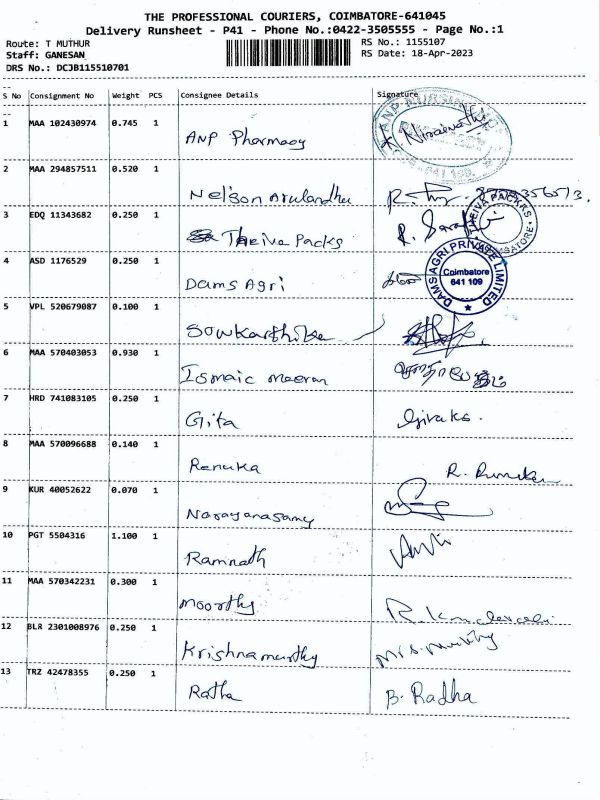 THE PROFESSIONAL COURIERS, COIMBATORE-641045
Delivery Runsheet - P41 - Phone No.:0422-3505555 - Page No.:1
Route: T MUTHUR RS No.: 1155107
Staff: GANESAN RS Date: 18-Apr-2023
DRS No.: DCJB115510701
S No Consignment No Weight PCS Consignee Details Signature
1 MAA 102430974 0.745 1 ANP Pharmacy
2 MAA 294857511 0.520 1 Nelson Arulandhu
3 EDQ 11343682 0.250 1 Theiva Packs
THEIVA PACKKS
4 ASD 1176529 0.250 1 Dams Agri
DAMS AGRI PRIVATE LIMITED
Coimbatore
641 109
5 VPL 520679087 0.100 1 Sowkarthika
6 MAA 570403053 0.930 1 Ismaic meeran
7 HRD 741083105 0.250 1 Gita
8 MAA 570096688 0.140 1 Renuka
9 KUR 40052622 0.070 1 Narayanasamy
10 PGT 5504316 1.100 1 Ramnath
11 MAA 570342231 0.300 1 Moorthy
12 BLR 2301008976 0.250 1 Krishnamurthy
13 TRZ 42478355 0.250 1 Ratha B. Radha